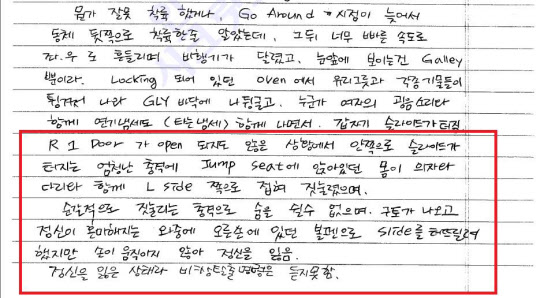 뭔가 잘못 착륙 했거나, Go Around 시점이 늦어서
동체 뒷쪽으로 착륙한줄 알았는데, 그뒤 너무 빠른 속도로
좌.우로 흔들리며 비행기가 달렸고, 눈앞에 보이는건 Galley
뿐이라. Locking 되어 있던 oven 에서 유리그릇과 각종기물들이
튕겨져 나와 GLY 바닥에 나뒹굴고, 누군가 여자의 굉음소리와
함께 연기냄새도 (타는냄새) 함께 나면서. 갑자기 슬라이드가 터짐.
R1 Door가 open 되지도 않은 상황에서 안쪽으로 슬라이드가
터지는 엄청난 충격에 Jump seat에 앉아있던 몸이 의자와
다리와 함께 L side 쪽으로 접혀 짓눌렸으며.
순간적으로 짓눌리는 충격으로 숨을 쉴수 없으며. 구토가 나오고
정신이 혼미해지는 와중에 오른손에 있던 볼펜으로 slide를 터뜨릴려
했지만 손이 움직이지 않아 정신을 잃음.
정신을 잃은 상태라 비상탈출명령은 듣지못함.